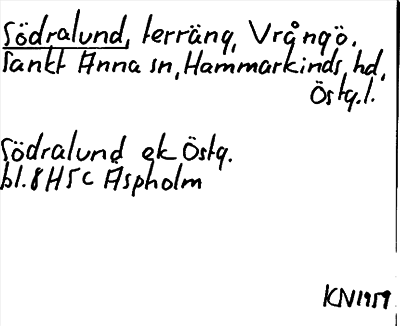 Södralund, terräng, Vrångö.
Sankt Anna sn, Hammarkinds hd,
Östg.l.
Södralund ek Östg.
bl. 8H5c Äspholm
KN 1959